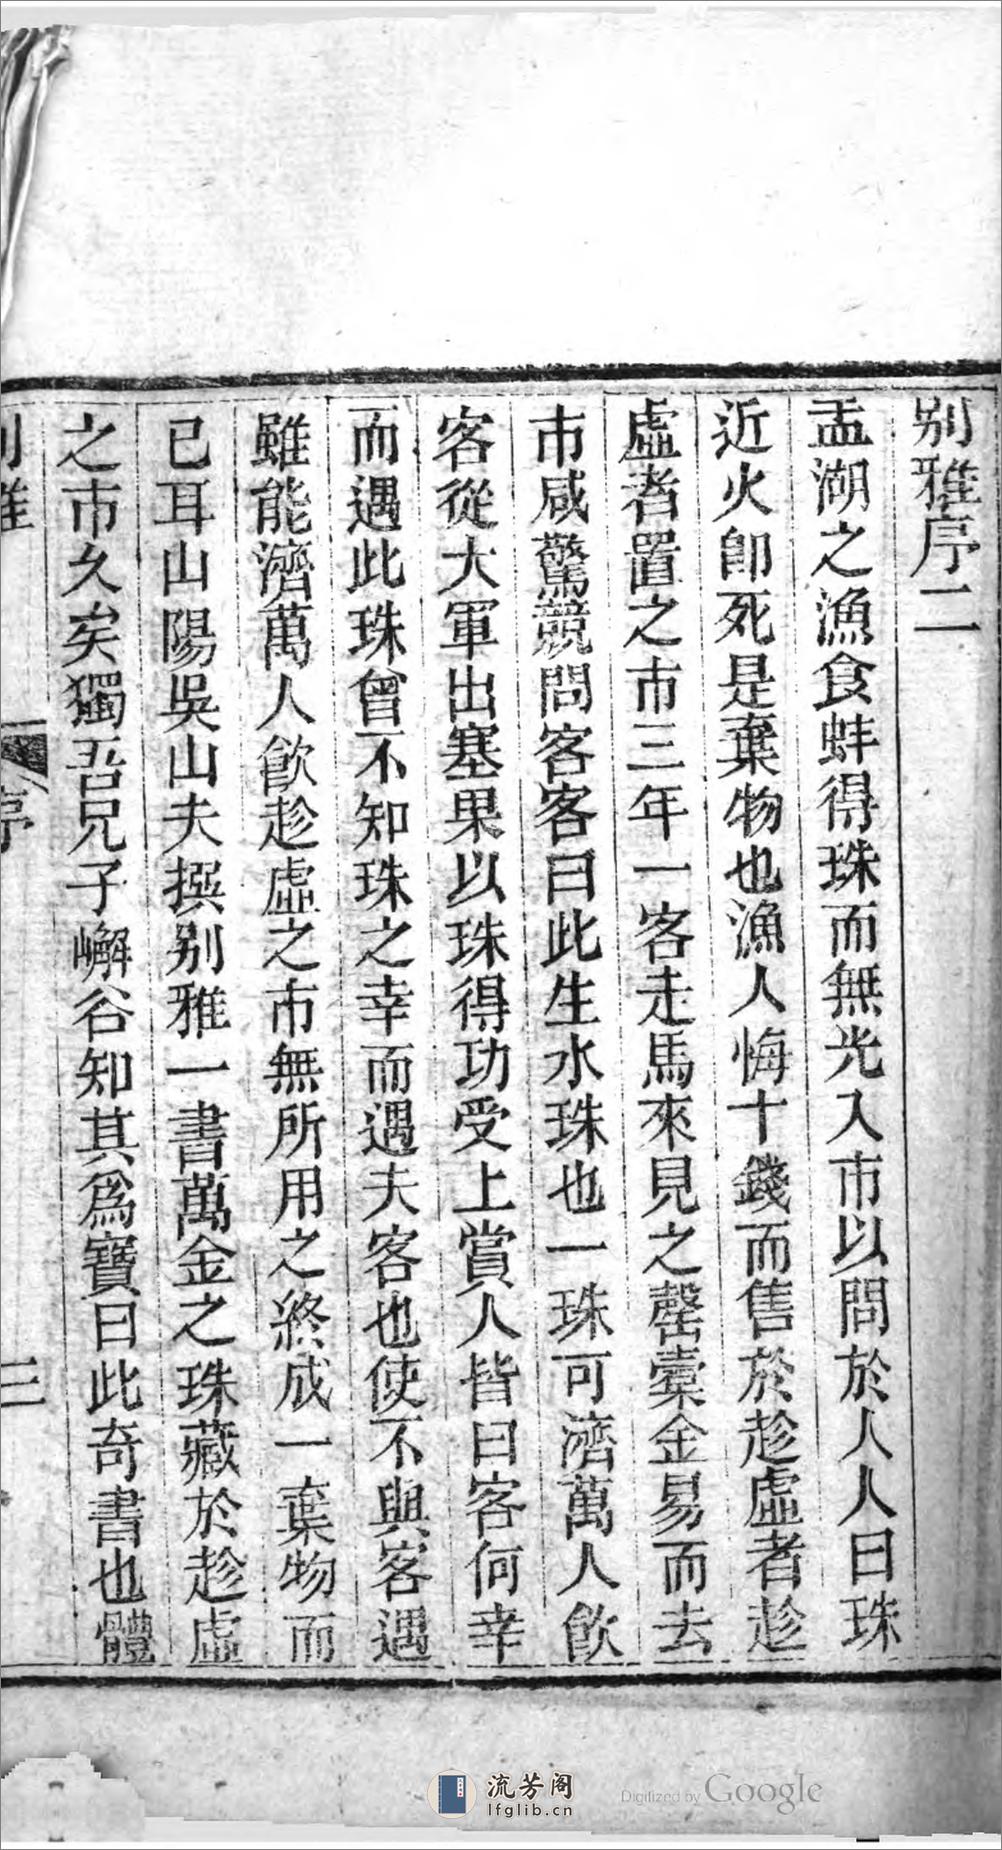 别雅序二
盂湖之漁食蚌得珠而無光入市以問於人人曰珠
近火卽死是棄物也漁人悔十錢而售於趁虛者趁
虛者置之市三年一客走馬來見之罄橐金易而去
市咸驚競問客客曰此生水珠也一珠可濟萬人飮
客從大軍出塞果以珠得功受上賞人皆曰客何幸
而遇此珠曾不知珠之幸而遇夫客也使不與客遇
雖能濟萬人飮趁虛之市無所用之終成一棄物而
已耳山陽吳山夫撰别雅一書萬金之珠藏於趁虛
之市久矣獨吾兄子嶰谷知其爲寶曰此奇書也體
别雅 序 三
流芳阁
lfglib.cn
Digitized by Google